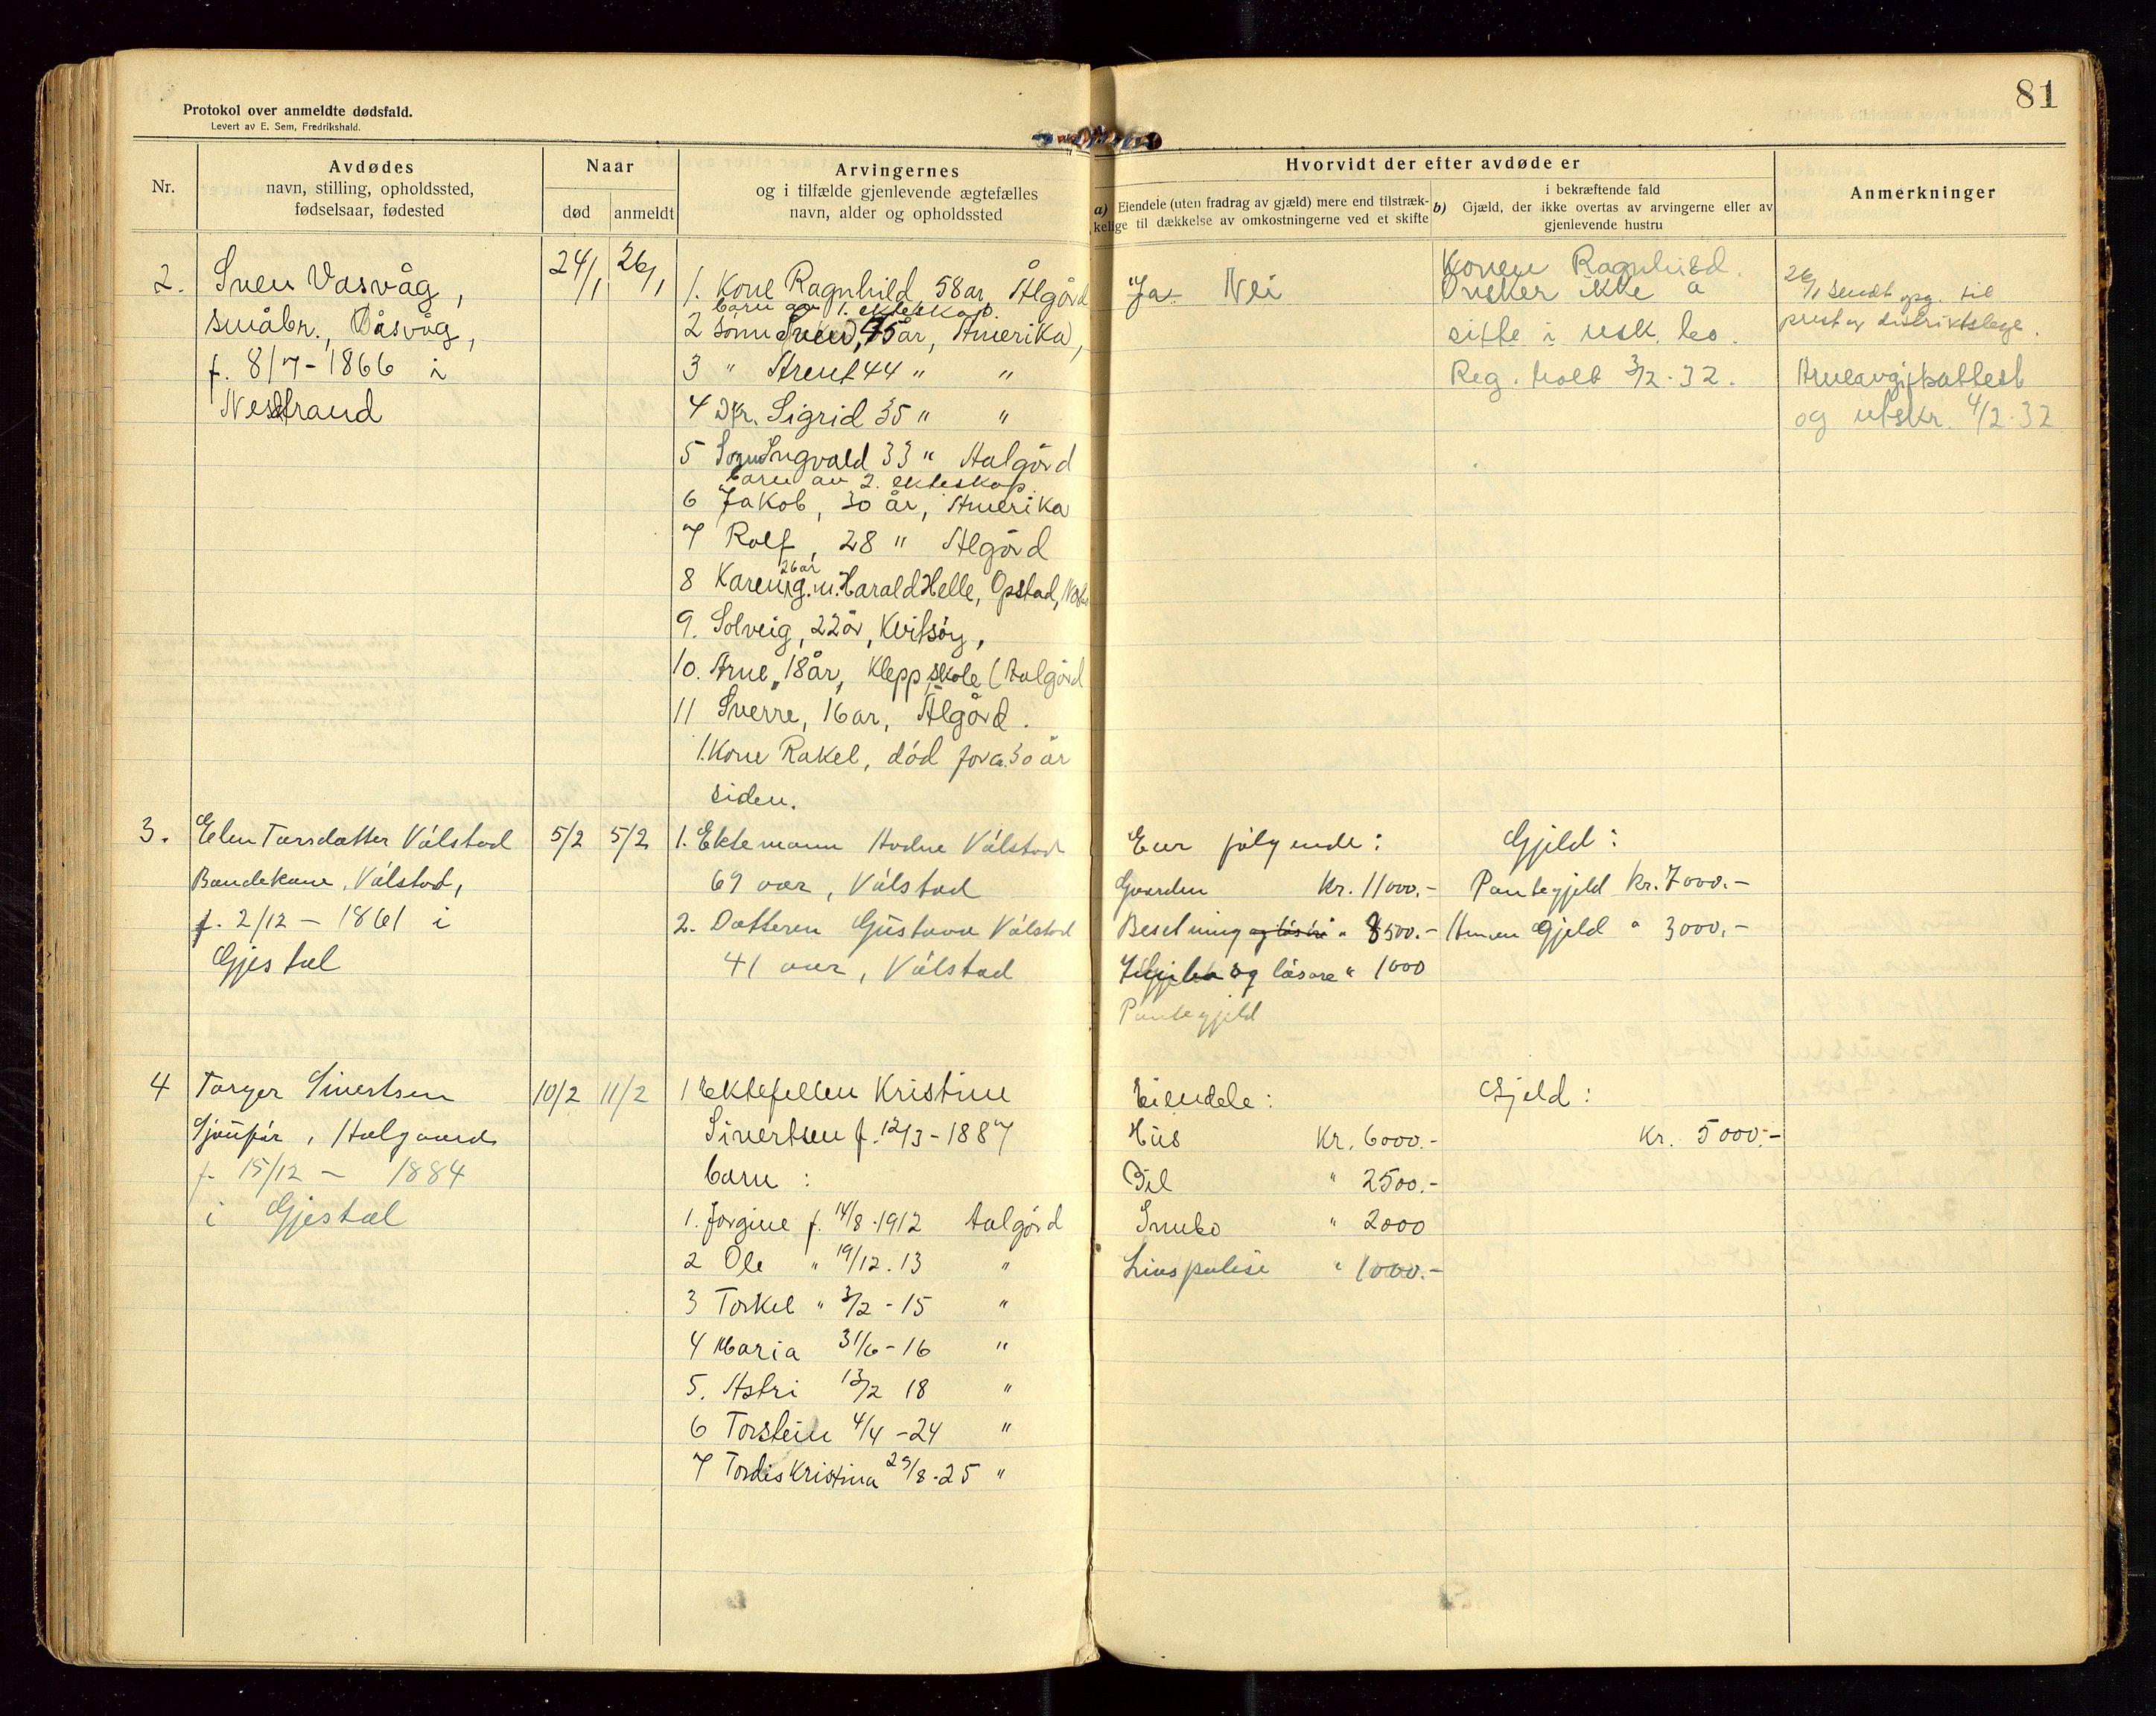 Protokol over anmeldte dødsfald.
Levert av E. Sem, Fredrikshald.
81
Nr.
Avdødes
navn, stilling, opholdssted,
fødselsaar, fødested
Naar
død
anmeldt
Arvingernes
og i tilfælde gjenlevende ægtefælles
navn, alder og opholdssted
Hvorvidt der efter avdøde er
a) Eiendele (uten fradrag av gjæld) mere end tilstræk-
kelige til dækkelse av omkostningerne ved et skifte
i bekræftende fald
b) Gjæld, der ikke overtas av arvingerne eller av
gjenlevende hustru
Anmerkninger
2.
Sven Vasvåg,
småbr., Våsvåg,
f. 8/7 - 1866 i
Nedstrand
24/1
26/1
1. Kone Ragnhild 58 år, Ålgård
barn av 1. ekteskap.
2 Sønn Sven, 45 år, Amerika,
3 " Arent 44 " "
4 Dtr. Sigrid 35 " "
5 Sønn Ingvald 33 " Aalgård
barn av 2. ekteskap
6 Jakob, 30 år, Amerika
7 Rolf, 28 " Ålgård
8 Karen, 26 år g.m. Harald Helle, Opstad,
9. Solveig, 22 år, Kvitsøy,
10. Arne, 18 år, Klepp skole (Aalgård
11 Sverre, 16 år, Ålgård.
1. Kone Rakel, død for ca. 30 år
siden.
Ja Nei
Konen Ragnhild
Ønsker ikke å
sitte i usk. bo.
Reg. holt 3/2-32.
26/1 sendt opg. til
prest og distriktslege.
Arveavgiftsattest
og utskr. 4/2-32
3.
Elen Torsdatter Vålstad
Bondekone, Vålstad,
f. 2/12 - 1861 i
Gjestal
5/2
5/2
1. Ektemann Hodne Vålstad
69 aar, Vålstad
2. Datteren Gustava Vålstad
41 aar, Vålstad
Eier følgende:
Gaarden Kr. 11000.-
Besetning og løsøre " 8500.-
og løsøre " 1000
Pantegjeld
Gjeld:
Pantegjeld Kr. 7000.-
Annen Gjeld " 3000.-
4
Torger Sivertsen
Sjåufør, Aalgaard
f. 15/12 - 1884
i Gjestal
10/2
11/2
1 Ektefellen Kristine
Sivertsen f. 12/3 - 1887
barn:
1. Jorgine f. 14/8-1912 Aalgård
2 Ole " 19/12.13 "
3 Torkel " 3/2 - 15 "
4 Maria 31/6 - 16 "
5. Astri 13/2 18 "
6 Torstein 4/4 - 24 "
7 Tordis Kristina 29/8-25 "
Eiendele:
Hus Kr. 6000.-
Bil " 2500.-
Innbo " 2000
Livspolise " 1000.-
Gjeld:
Kr. 5000.-